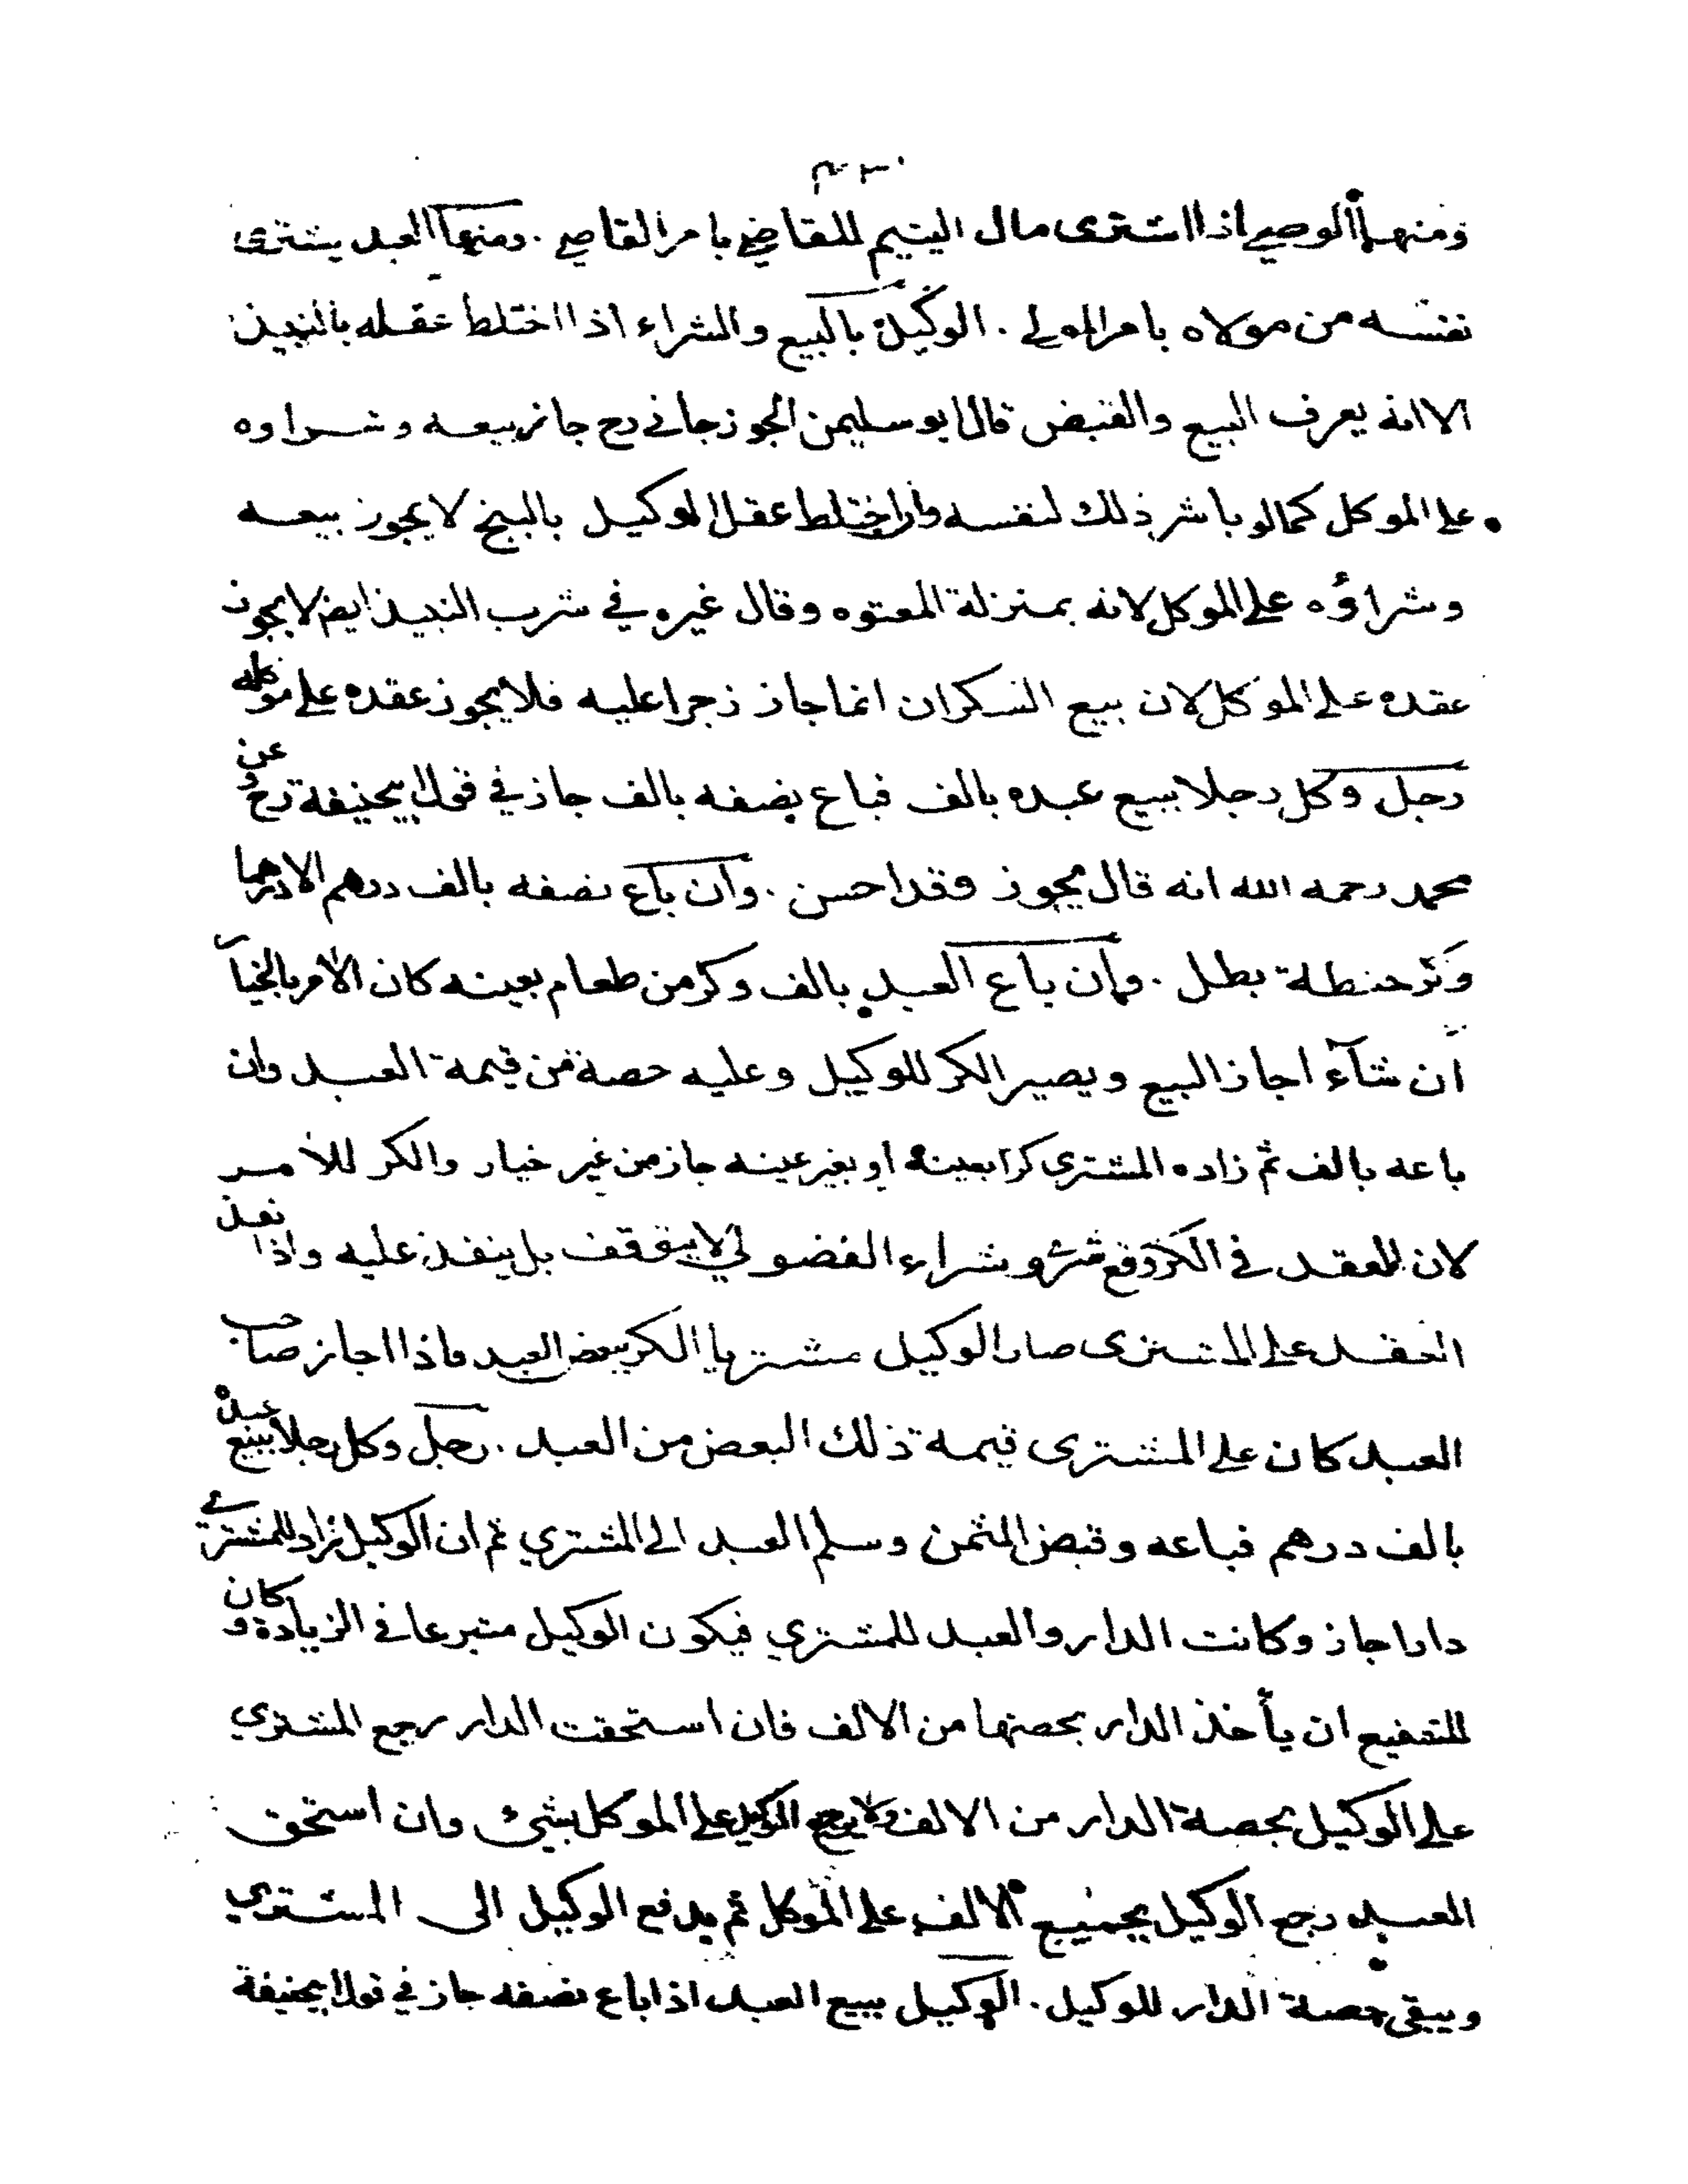 ومنها الوصي اذا اشترى مال اليتيم للقاضي بامر القاضي . ومنها العبد يشترى
نفسه من مولاه بامر المولى . الوكيل بالبيع والشراء اذا اختلط عقله بالنبيذ
الا انه يعرف البيع والقبض قال ابو سليمن الجوزجاني رح جاز بيعه وشراوه
على الموكل كما لو باشر ذلك لنفسه واذا اختلط عقل الوكيل بالبنج لا يجوز بيعه
وشراؤه على الموكل لانه بمنزلة المعتوه وقال غيره في شرب النبيذ ايض لا يجوز
عقده على الموكل لان بيع السكران انما جاز زجرا عليه فلا يجوز عقده على موكله
رجل وكل رجلا ببيع عبده بالف فباع نصفه بالف جاز في قول ابيحنيفة رح وعن
محمد رحمه الله انه قال يجوز فقد احسن . وان باع نصفه بالف درهم الا درهما
وكر حنطة بطل . وان باع العبد بالف وكر من طعام بعينه كان الامر بالخيار
ان شآء اجاز البيع ويصير الكر للوكيل وعليه حصة من قيمة العبد وان
باعه بالف ثم زاده المشتري كرا بعينه او بغير عينه جاز من غير خيار والكر للأمر
لان العقد في الكر وقع شراء وشراء الفضولي لا يتوقف بل ينفذ عليه واذا نفذ
العقد على المشترى صار الوكيل مشتريا الكر ببعض العبد فاذا اجاز صاحب
العبد كان على المشترى قيمة ذلك البعض من العبد . رجل وكل رجلا ببيع عبده
بالف درهم فباعه وقبض الثمن وسلم العبد الى المشتري ثم ان الوكيل زاد للمشتري
دارا جاز وكانت الدار والعبد للمشتري فيكون الوكيل متبرعا في الزيادة وكان
للشفيع ان يأخذ الدار بحصتها من الالف فان استحقت الدار رجع المشتري
على الوكيل بحصة الدار من الالف ولا يرجع الوكيل على الموكل بشئ وان استحق
العبد رجع الوكيل بجميع الالف على الموكل ثم يدفع الوكيل الى المشتري
ويبقى حصة الدار للوكيل . الوكيل ببيع العبد اذا باع نصفه جاز في قول ابيحنيفة